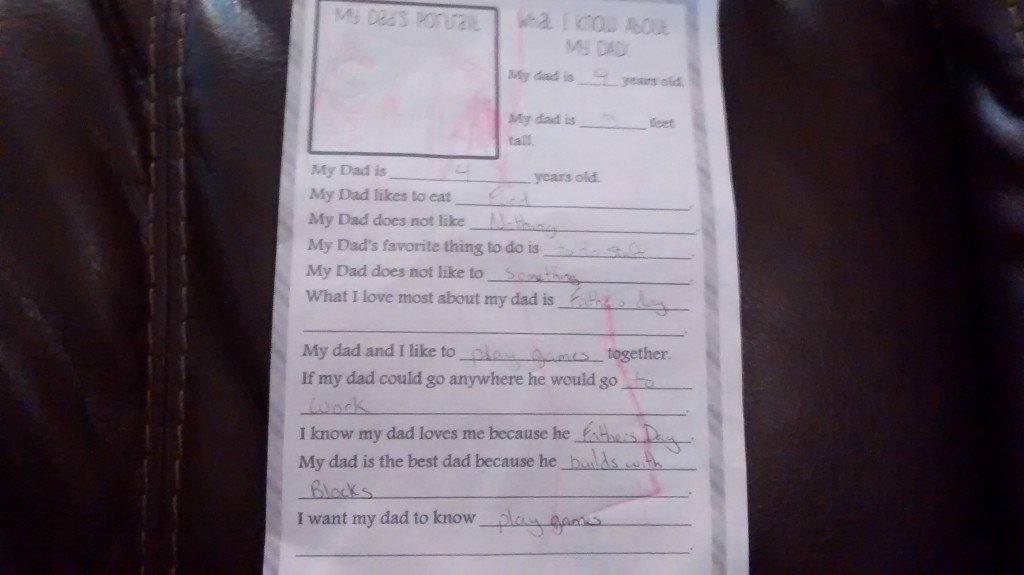 My Dad's Portrait
What I Know About
My Dad
My dad is 4 years old.
My dad is ______ feet
tall.
My Dad is 4 years old.
My Dad likes to eat Food.
My Dad does not like Nothing.
My Dad's favorite thing to do is to do stuff.
My Dad does not like to Something.
What I love most about my dad is Father's day
.
My dad and I like to play games together.
If my dad could go anywhere he would go to
work.
I know my dad loves me because he Fathers Day.
My dad is the best dad because he builds with
Blocks.
I want my dad to know play games
.